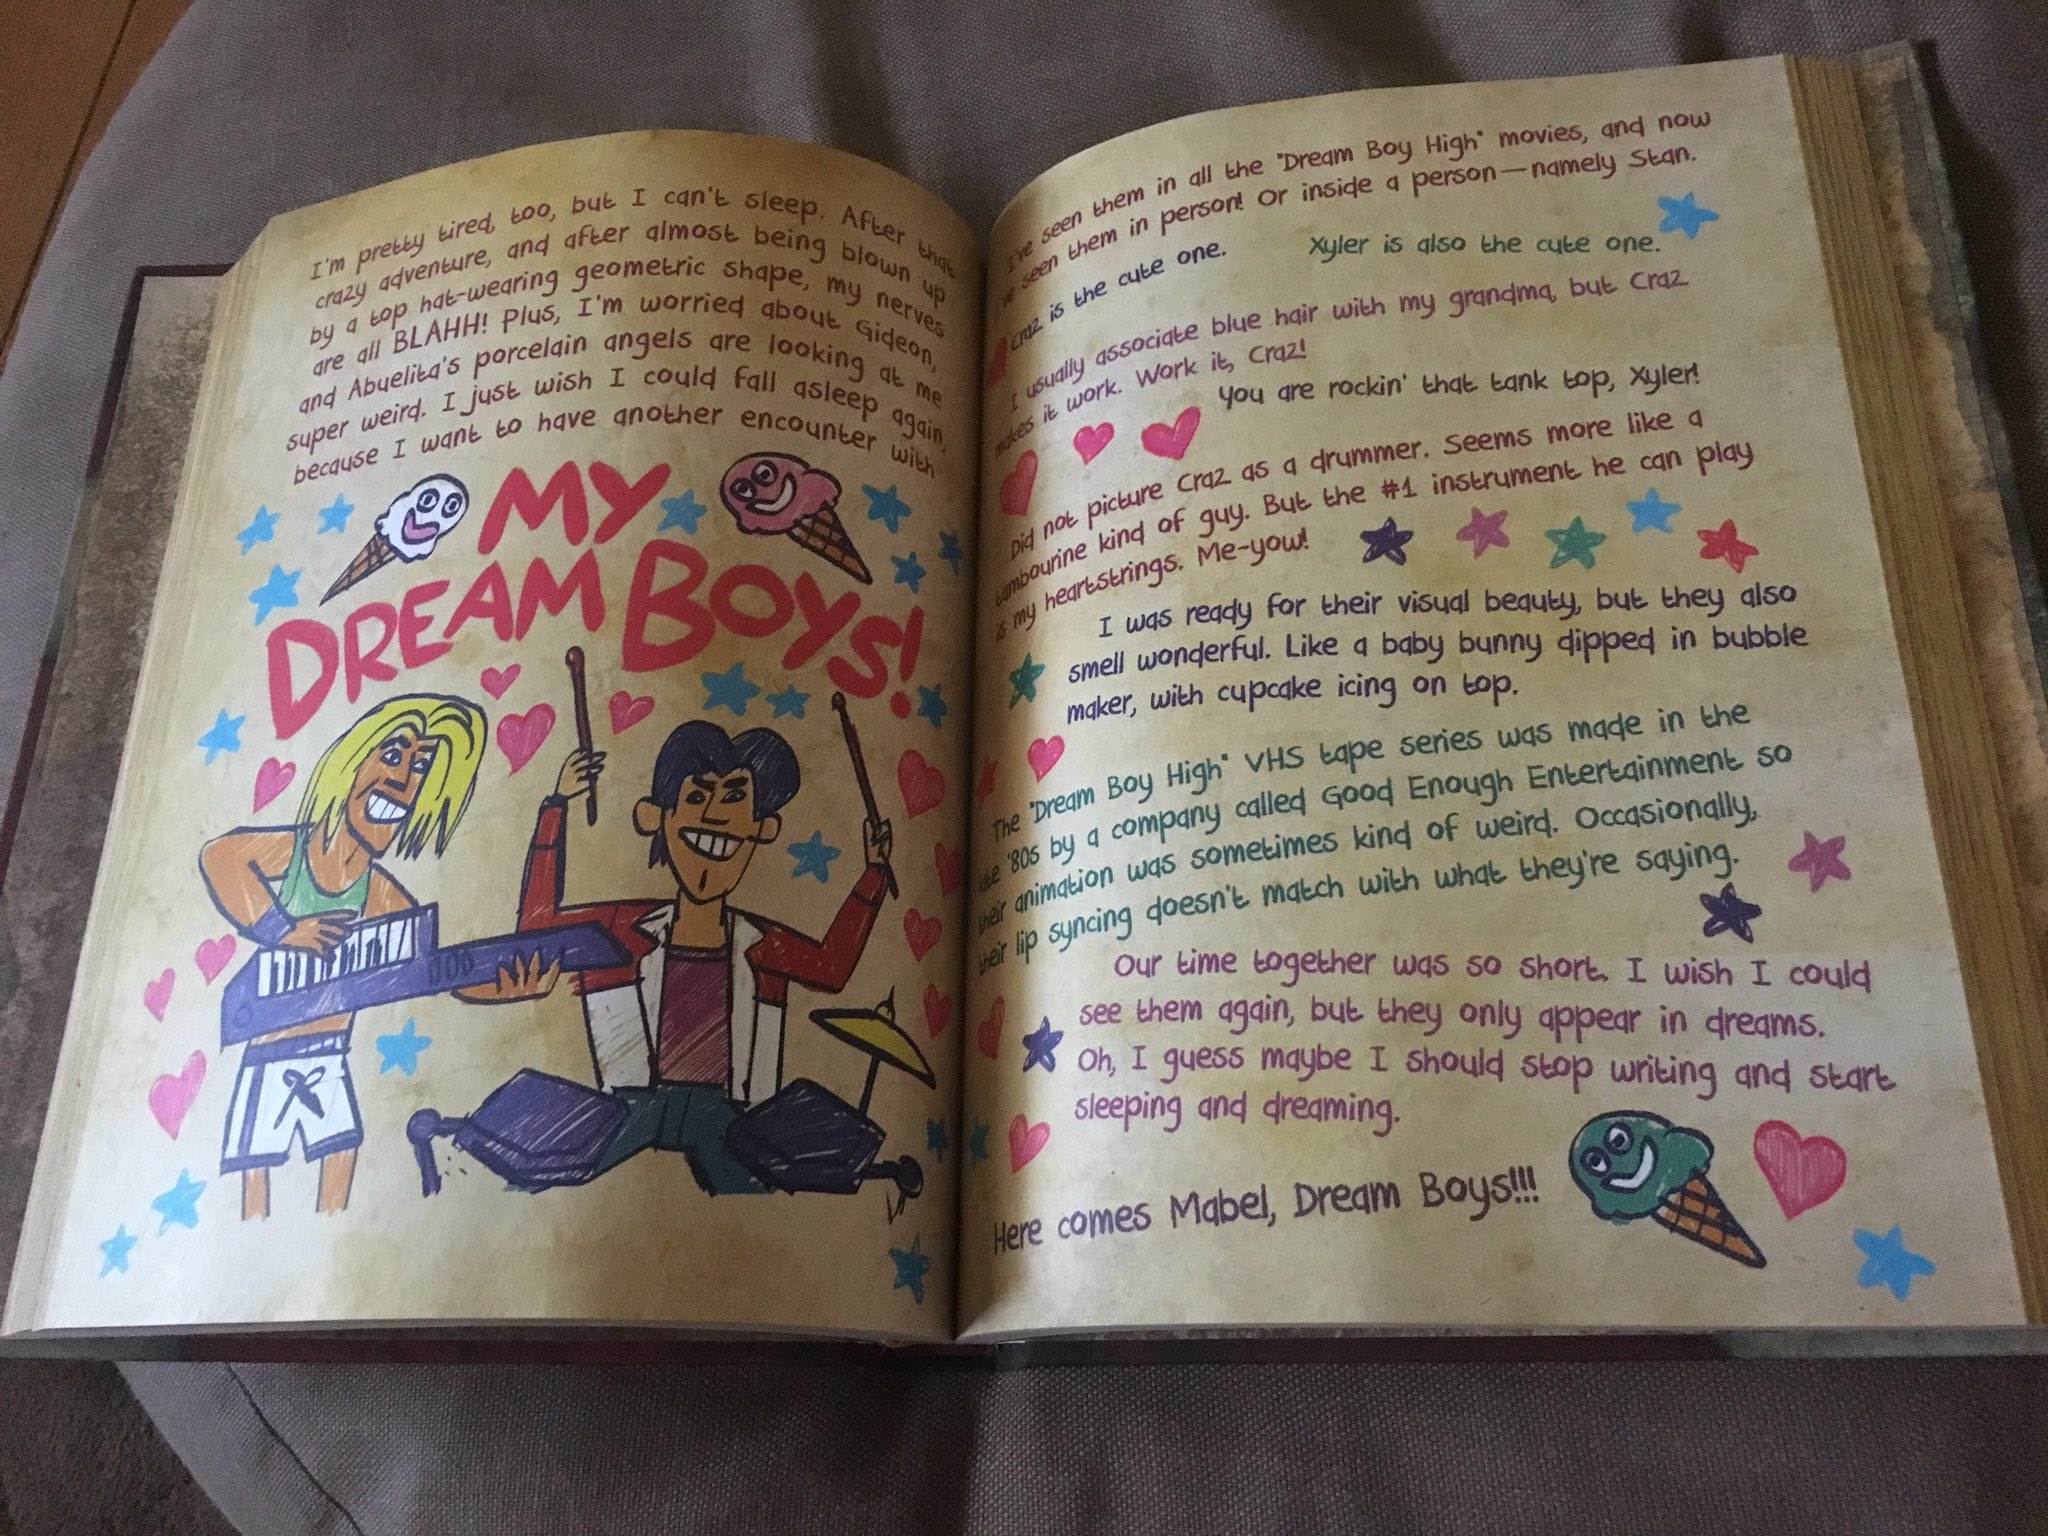 I'm pretty tired, too, but I can't sleep. After that
crazy adventure, and after almost being blown up
by a top hat-wearing geometric shape, my nerves
are all BLAHH! Plus, I'm worried about Gideon,
and Abuelita's porcelain angels are looking at me
super weird. I just wish I could fall asleep again,
because I want to have another encounter with
MY
DREAM BOYS!
I've seen them in all the "Dream Boy High" movies, and now
I've seen them in person! Or inside a person—namely Stan.
Craz is the cute one.
Xyler is also the cute one.
I usually associate blue hair with my grandma, but Craz
makes it work. Work it, Craz!
You are rockin' that tank top, Xyler!
Did not picture Craz as a drummer. Seems more like a
tambourine kind of guy. But the #1 instrument he can play
is my heartstrings. Me-yow!
I was ready for their visual beauty, but they also
smell wonderful. Like a baby bunny dipped in bubble
maker, with cupcake icing on top.
The "Dream Boy High" VHS tape series was made in the
late '80s by a company called Good Enough Entertainment so
their animation was sometimes kind of weird. Occasionally,
their lip syncing doesn't match with what they're saying.
Our time together was so short. I wish I could
see them again, but they only appear in dreams.
Oh, I guess maybe I should stop writing and start
sleeping and dreaming.
Here comes Mabel, Dream Boys!!!